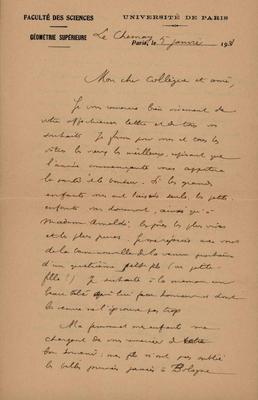 FACULTÉ DES SCIENCES
UNIVERSITÉ DE PARIS
GÉOMÉTRIE SUPÉRIEURE
Le Chesnay
Paris, le 5 janvier 193
Mon cher Collègue et ami,
Je vous remercie bien vivement de
votre affectueuse lettre et de tous vos
souhaits. Je forme pour vous et tous les
vôtres les vœux les meilleurs, espérant que
l'année commençante vous apportera
la santé et le bonheur. Si les grands
enfants vous ont laissés seuls, les petits
enfants vous donnent, ainsi qu'à
Madame
et les plus pures.
de la bonne nouvelle de la venue prochaine
d'un quatrième petit fils (ou petite
fille!) Je souhaite à la maman un
beau bébé qui lui fasse honneur et dont
la venue ne l'éprouve pas trop
Ma femme et mes enfants me
chargent de vous remercier de votre
bon souvenir; ma fille n'a pas oublié
les belles journées passées à Bologne